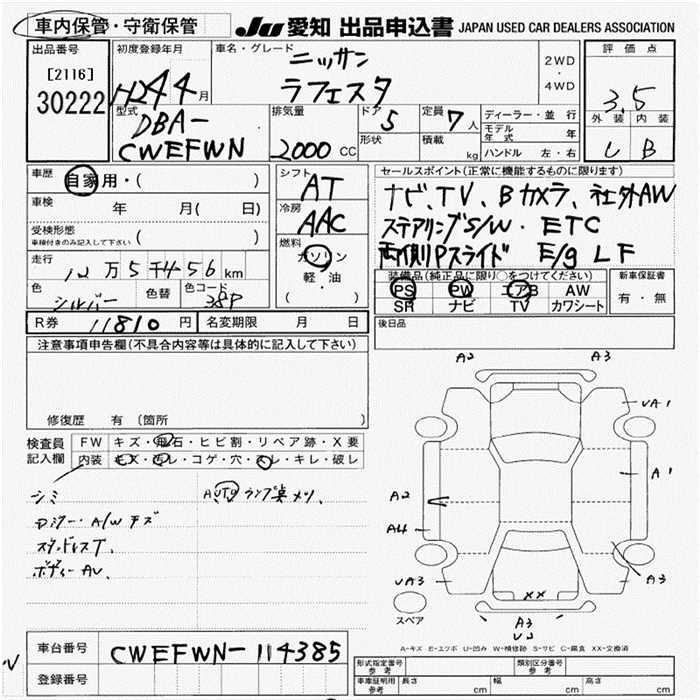 車内保管・守衛保管
JU 愛知 出品申込書 JAPAN USED CAR DEALERS ASSOCIATION
出品番号
[2116]
30222
初度登録年月
H24 4月
車名・グレード
ニッサン
ラフェスタ
2WD
・
4WD
評価点
3.5
外装 内装
B
型式
DBA-
CWEFWN
排気量
2000 CC
ドア 5
形状
定員 7人
積載 kg
ディーラー・並行
モデル年式 年
ハンドル 左・右
車歴
自家用・( )
車検 年 月( 日)
受検形態
車検付きのみ記入して下さい ( )
走行
12万5千456km
色 シルバー 色替 色コード 38P
R券 11810円 名変期限 月 日
シフト
AT
冷房
AAC
燃料
ガソリン
軽・油
( ・ )
セールスポイント(正常に機能するものに限ります)
ナビ、TV、Bカメラ、社外AW
ステアリングS/W・ETC
両側Pスライド E/g LF
装備品(純正品に限り○をつけてください)
PS PW エアB AW
SR ナビ TV カワシート
新車保証書
有・無
後日品
注意事項申告欄(不具合内容等は具体的に記入して下さい)
修復歴 有 (箇所 )
検査員記入欄
FW キズ・飛石・ヒビ割・リペア跡・X要
内装 キズ・汚レ・コゲ・穴・スレ・キレ・破レ
シミ
AUTOランプ
A/Wキズ
ボディーAU
A2 A3
UA1
A1
A2
A4
UA3
A3
XX
A3
スペア
A-キズ E-エクボ U-凹み W-補修跡 S-サビ C-腐食 XX-交換済
車台番号 CWEFWN-114385
登録番号
形式指定番号 参考
類別区分番号 参考
車庫証明用 参考 長さ cm 幅 cm 高さ cm